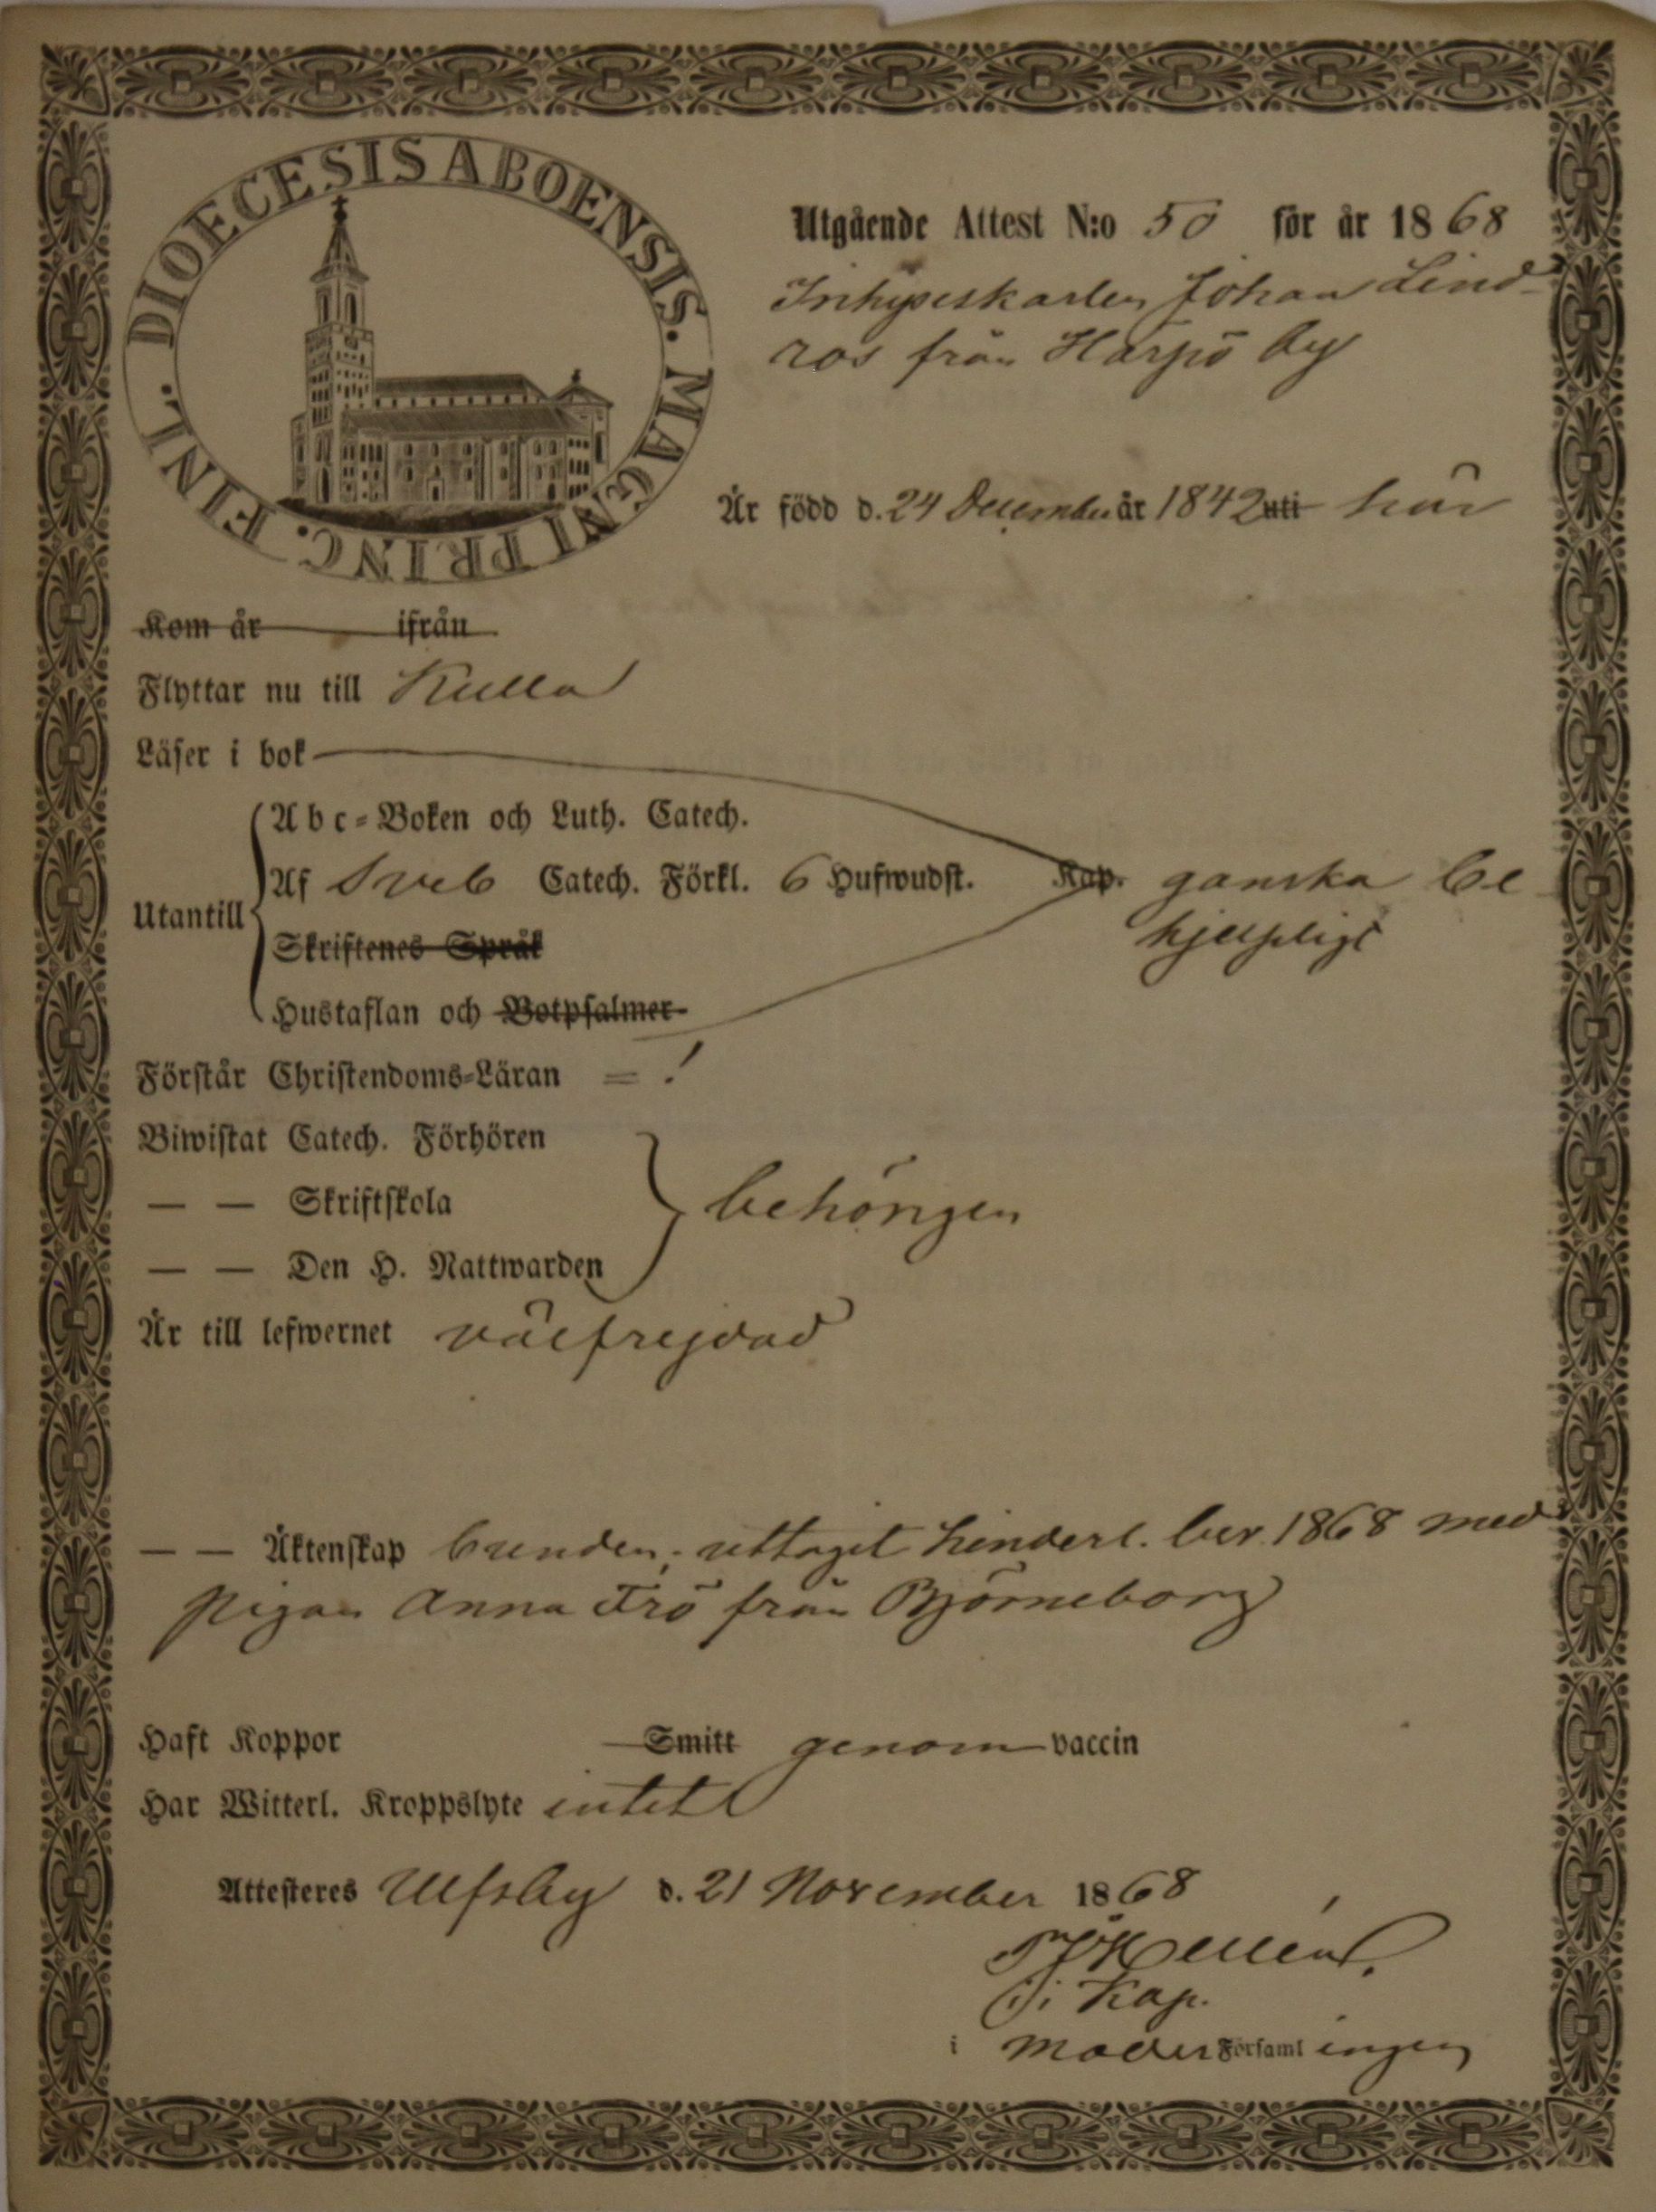 DIOECESIS ABOENSIS. MAGNI PRINC. FINL.
Utgående Attest N:o 50 för år 1868
Inhyseskarlen Johan Lind-
ros från Harjió by
Är född d. 24 December år 1842 uti här
Kom år ifrån
Flyttar nu till Kulla
Läser i bok
Abc-Boken och Luth. Catech.
Utantill
Af Sveb Catech. Förkl. 6 Hufwudst. Kap. ganska be
hjelpligt
Skriftenes Språk
Hustaflan och Botpsalmer
Förstår Christendoms-Läran = !
Biwistat Catech. Förhören
— — Skriftskola behörigen
— — Den H. Nattwarden
Är till lefwernet välfrejdad
— — Äktenskap bunden; uttagit hinderl. bev. 1868 med
pigan Anna Frö från Björneborg
Haft Koppor Smitt genom vaccin
Har Witterl. Kroppslyte intet
Attesteres Ulfsby d. 21 November 1868
Hellén
Kap.
i moder Församlingen